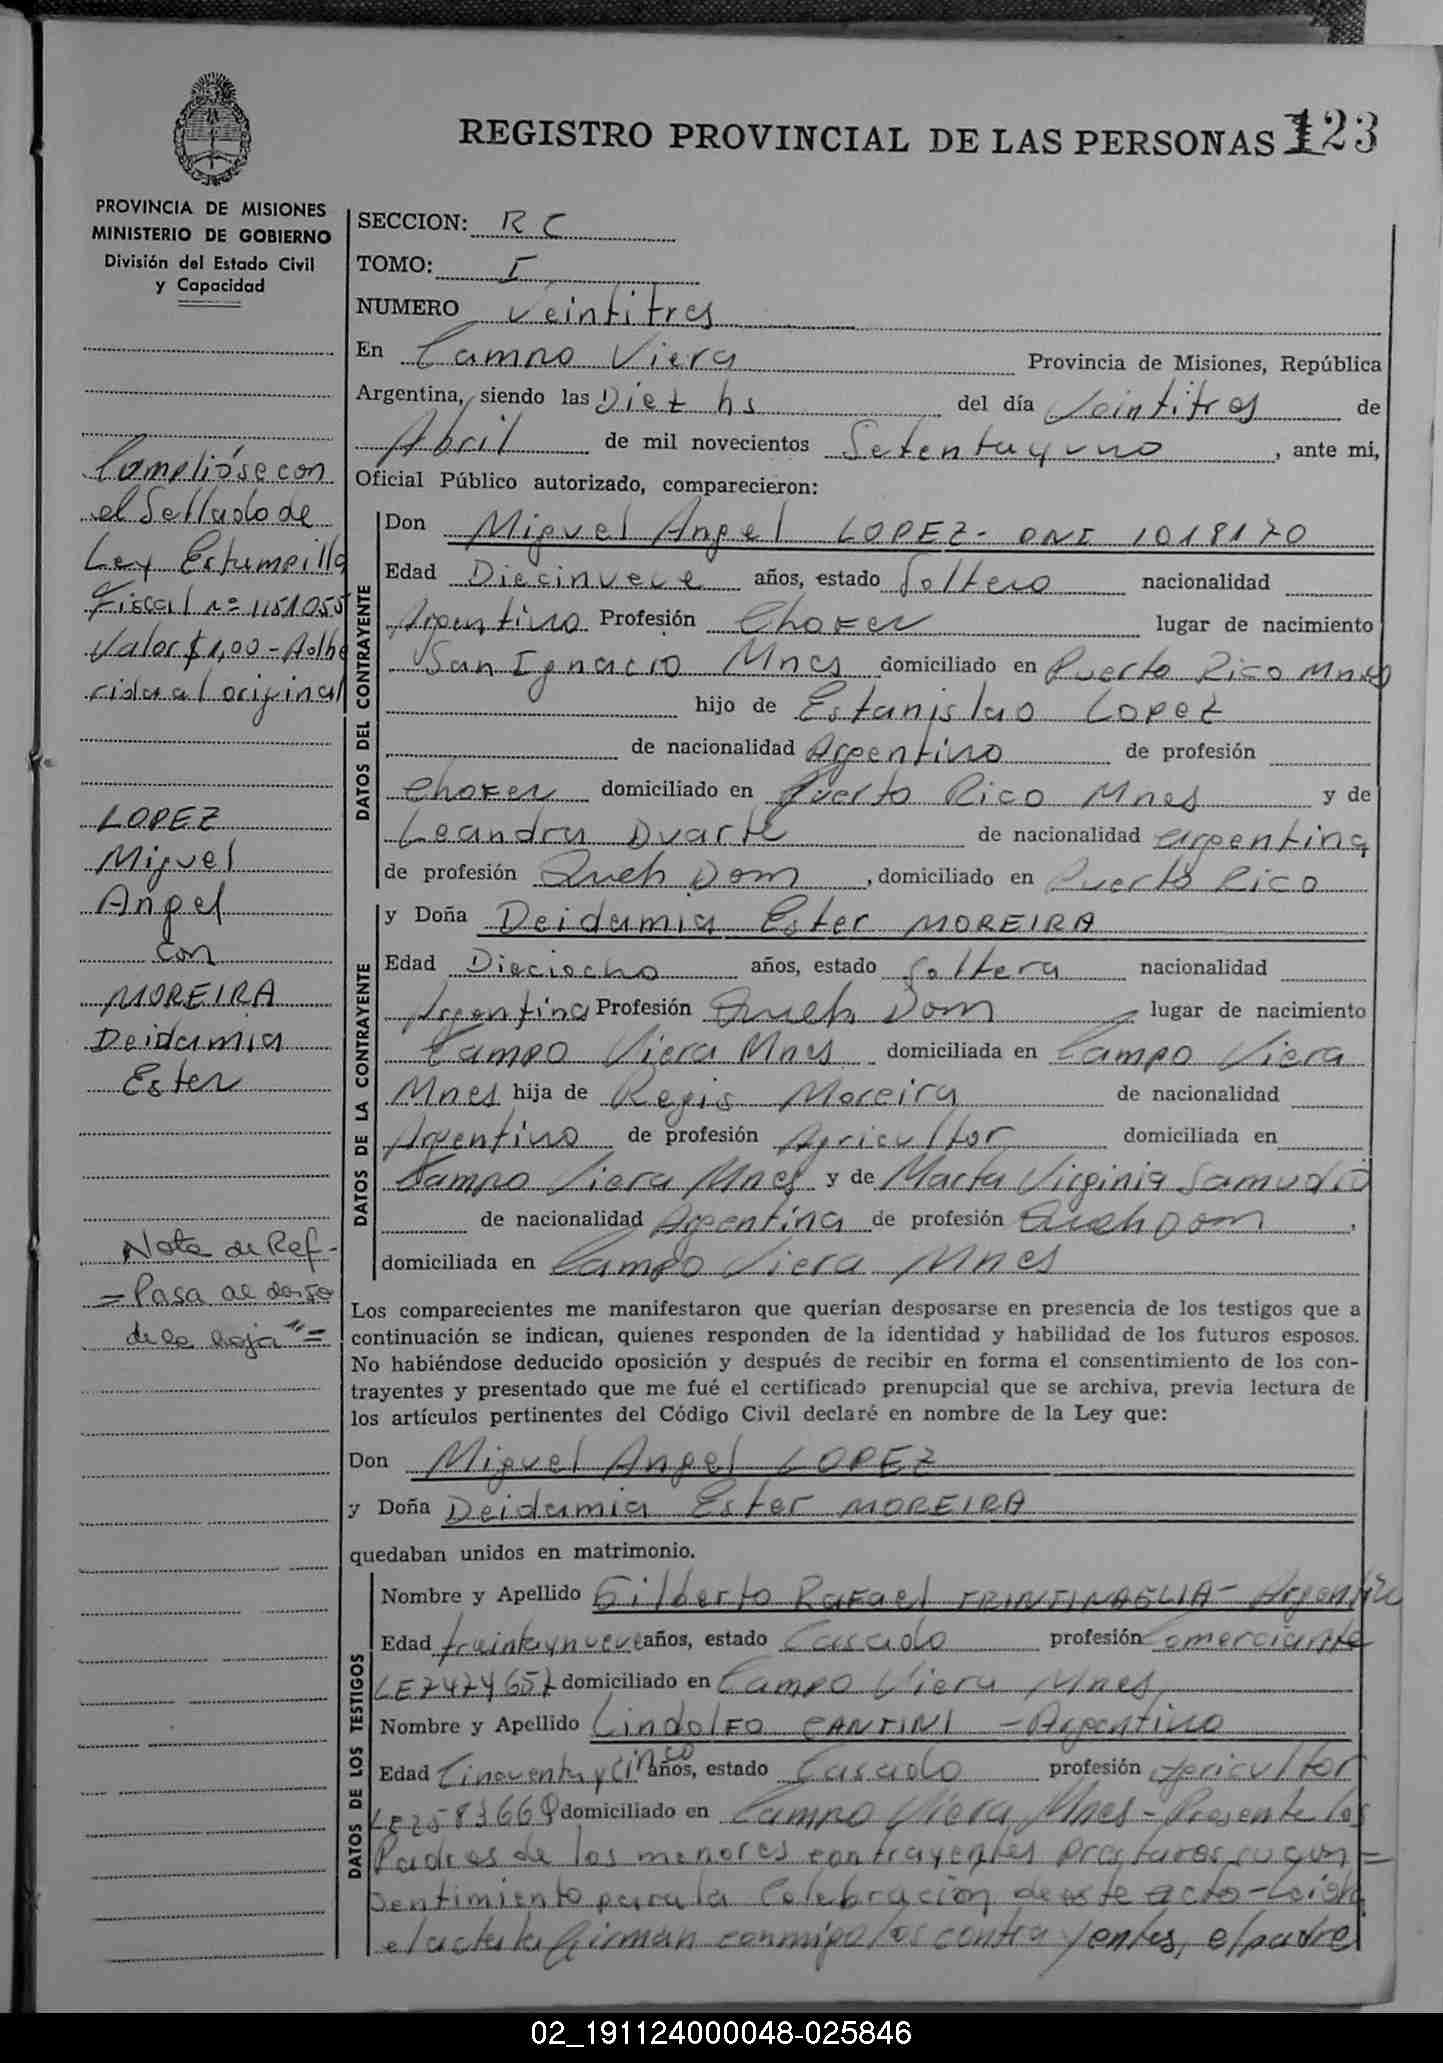 REGISTRO PROVINCIAL DE LAS PERSONAS 123
PROVINCIA DE MISIONES
MINISTERIO DE GOBIERNO
División del Estado Civil
y Capacidad
Cumplióse con
el Sellado de
Ley Estampilla
Fiscal nº 1151055
Valor $1,00 - Adhe
rida al original
LOPEZ
Miguel
Angel
con
MOREIRA
Deidamia
Ester
Nota de Ref-
= Pasa al dorso
de la hoja "=
SECCION: R C
TOMO: I
NUMERO Veintitres
En Campo Viera Provincia de Misiones, República
Argentina, siendo las Diez hs del día Veintitres de
Abril de mil novecientos Setentayuno, ante mi,
Oficial Público autorizado, comparecieron:
DATOS DEL CONTRAYENTE
Don Miguel Angel LOPEZ- DNI 1018170
Edad Diecinueve años, estado Soltero nacionalidad
Argentino Profesión Chofer lugar de nacimiento
San Ignacio Mnes domiciliado en Puerto Rico Mnes
hijo de Estanislao Lopez
de nacionalidad Argentino de profesión
Chofer domiciliado en Puerto Rico Mnes y de
Leandra Duarte de nacionalidad argentina
de profesión Queh Dom, domiciliado en Puerto Rico
DATOS DE LA CONTRAYENTE
y Doña Deidamia Ester MOREIRA
Edad Dieciocho años, estado Soltera nacionalidad
Argentina Profesión Queh Dom lugar de nacimiento
Campo Viera Mnes domiciliada en Campo Viera
Mnes hija de Regis Moreira de nacionalidad
Argentino de profesión Agricultor domiciliada en
Campo Viera Mnes y de Marta Virginia Samudio
de nacionalidad Argentina de profesión Queh Dom,
domiciliada en Campo Viera Mnes
Los comparecientes me manifestaron que querían desposarse en presencia de los testigos que a
continuación se indican, quienes responden de la identidad y habilidad de los futuros esposos.
No habiéndose deducido oposición y después de recibir en forma el consentimiento de los con-
trayentes y presentado que me fué el certificado prenupcial que se archiva, previa lectura de
los artículos pertinentes del Código Civil declaré en nombre de la Ley que:
Don Miguel Angel LOPEZ
y Doña Deidamia Ester MOREIRA
quedaban unidos en matrimonio.
DATOS DE LOS TESTIGOS
Nombre y Apellido Gilberto Rafael - Argentino
Edad treintaynueve años, estado Casado profesión Comerciante
LE 7474657 domiciliado en Campo Viera Mnes
Nombre y Apellido Lindolfo CANTINI - Argentino
Edad Cincuentaycinco años, estado Casado profesión Agricultor
LE domiciliado en Campo Viera Mnes - Presente los
Padres de los menores contrayentes prestaron su con=
sentimiento para la Celebracion de este acto - Leida
el acta la firman conmigo los contrayentes, el padre
02_191124000048-025846